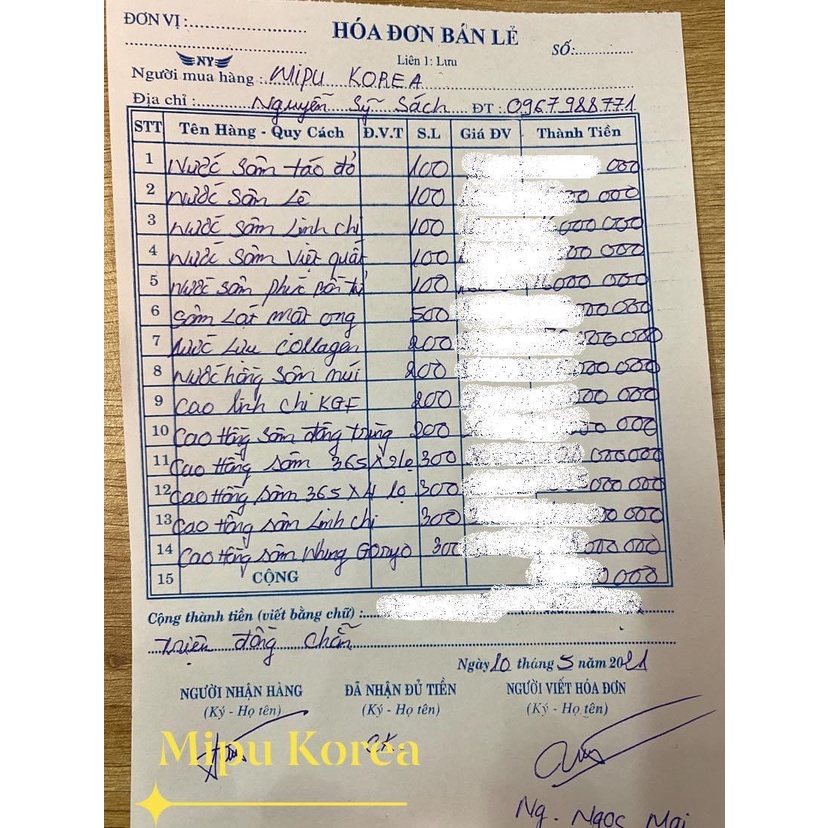 ĐƠN VỊ :
HÓA ĐƠN BÁN LẺ
SỐ:
NY
Liên 1: Lưu
Người mua hàng : MIPU KOREA
Địa chỉ : Nguyễn Sỹ Sách ĐT : 0967988771
STT Tên Hàng - Quy Cách Đ.V.T S.L Giá ĐV Thành Tiền
1 Nước Sâm táo đỏ 100 000
2 Nước Sâm Lê 100 000
3 Nước Sâm Linh chi 100 000 000
4 Nước Sâm Việt quất 100 000
5 Nước Sâm phúc bồn tử 100 16000 000
6 Sâm Lát mật ong 500 000
7 Nước Lựu Collagen 200 000
8 Nước hồng Sâm núi 200 000
9 Cao linh chi KGF 200 000
10 Cao Hồng Sâm đông trùng 200 000
11 Cao Hồng Sâm 365 x 2lọ 300 000000
12 Cao Hồng Sâm 365 x 4 lọ 300 000000
13 Cao Hồng Sâm Linh chi 300 000
14 Cao Hồng Sâm Nhung Gonyo 300 000 000
15 CỘNG 0000
Cộng thành tiền (viết bằng chữ) :
triệu đồng chẵn
Ngày 20 tháng 5 năm 2021
NGƯỜI NHẬN HÀNG ĐÃ NHẬN ĐỦ TIỀN NGƯỜI VIẾT HÓA ĐƠN
(Ký - Họ tên) (Ký - Họ tên) (Ký - Họ tên)
CK
Mipu Korea
Ng. Ngọc Mai